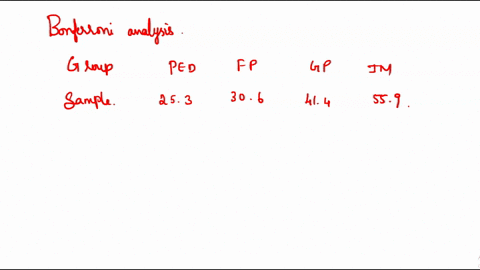 Bonferroni analysis.
Group PED FP GP IM
Sample. 25.3 30.6 41.4 55.9.